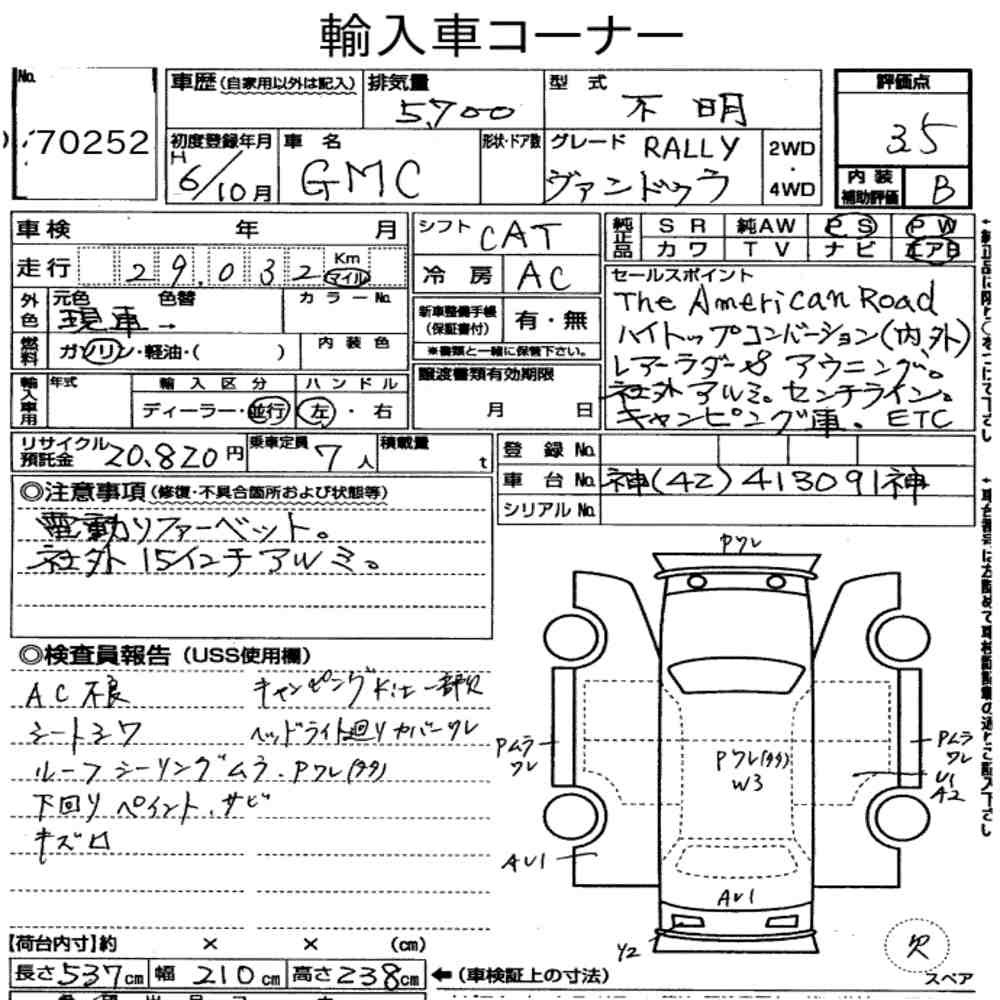 輸入車コーナー
No. 70252
車歴(自家用以外は記入) 排気量 5,700 型式 不明 評価点 35
初度登録年月 H 6/10月 車名 GMC 形状・ドア数 グレード RALLY ヴァンドゥラ 2WD・4WD 内装補助評価 B
車検 年 月 シフト CAT 純正品 SR 純AW PS PW
走行 29.032 Km マイル 冷房 AC カワ TV ナビ エアB
外色 元色 現車→ 色替 カラーNo. 新車整備手帳(保証書付) 有・無
燃料 ガソリン・軽油・( ) 内装色 ※書類と一緒に保管下さい。
セールスポイント
The American Road
ハイトップコンバージョン(内外)
レアーラダー& アウニング。
社外アルミ。センチライン。
キャンピング車。ETC
輸入車用 年式 輸入区分 ハンドル
ディーラー・並行 左・右
譲渡書類有効期限
月 日
リサイクル預託金 20,820円 乗車定員 7人 積載量 t
登録No.
車台No. 神(42)413091神
シリアルNo.
◎注意事項(修復・不具合箇所および状態等)
電動リファーベット。
社外15インチアルミ。
◎検査員報告(USS使用欄)
AC不良 キャンピングK仕一部欠
シートシワ ヘッドライト廻りカバーワレ
ルーフシーリングムラ.Pワレ(タタ)
下回りペイント.サビ
キズ凹
Pワレ
Pムラ
ワレ
Pワレ(タタ)
W3
Pムラ
ワレ
U1
A2
AU1
AU1
Y2
欠
スペア
【荷台内寸】約 × × (cm)
長さ537cm 幅 210cm 高さ238cm ←(車検証上の寸法)